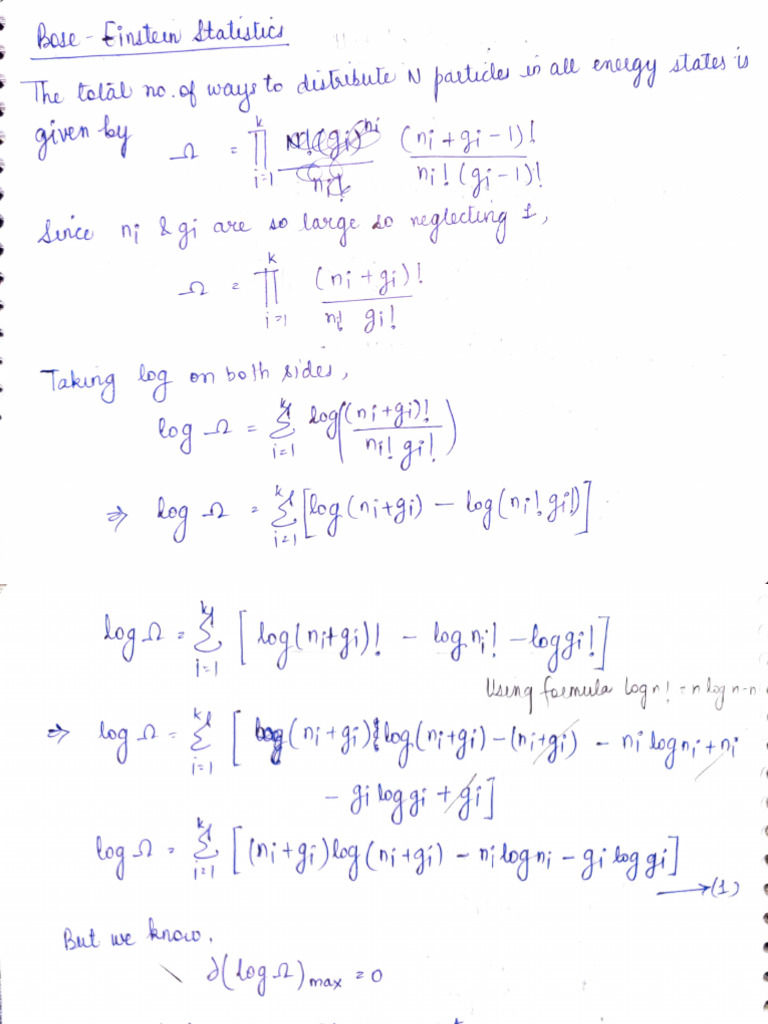 Bose - Einstein Statistics
The total no. of ways to distribute N particles in all energy states is
given by Ω = ∏_{i=1}^{k} (ni + gi - 1)! / ni! (gi - 1)!
Since ni & gi are so large so neglecting 1,
Ω = ∏_{i=1}^{k} (ni + gi)! / ni! gi!
Taking log on both sides,
log Ω = Σ_{i=1}^{k} log((ni + gi)! / ni! gi!)
⇒ log Ω = Σ_{i=1}^{k} [log (ni + gi) - log (ni! gi!)]
log Ω = Σ_{i=1}^{k} [log (ni + gi)! - log ni! - log gi!]
Using formula log n! = n log n - n
⇒ log Ω = Σ_{i=1}^{k} [(ni + gi) log (ni + gi) - (ni + gi) - ni log ni + ni
- gi log gi + gi]
log Ω = Σ_{i=1}^{k} [(ni + gi) log (ni + gi) - ni log ni - gi log gi]
→ (1)
But we know,
∂(log Ω)max = 0